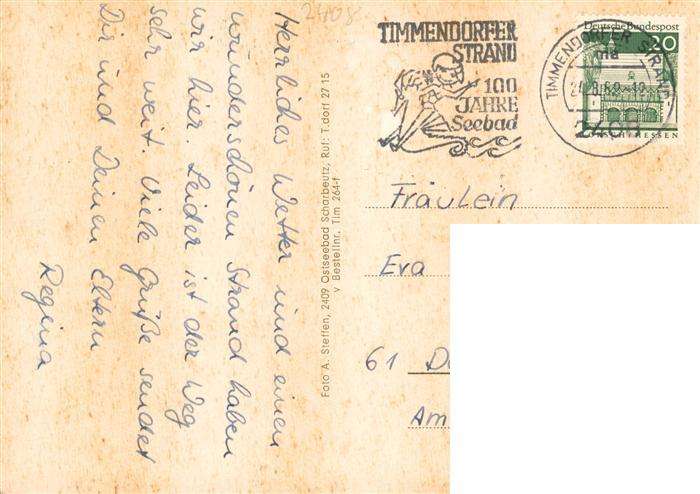 2408
Herrliches Wetter und einen
wunderschönen Strand haben
wir hier. Leider ist der Weg
sehr weit. Viele Grüße sendet
Dir und Deinen Eltern
Regina
Foto A. Steffen, 2409 Ostseebad Scharbeutz, Ruf: T.dorf 27 15
v Bestellnr. Tim 264-f
TIMMENDORFER
STRAND
100
JAHRE
Seebad
TIMMENDORFER STRAND
ma
2408
Deutsche Bundespost
20
HESSEN
Fräulein
Eva
61 D
Am